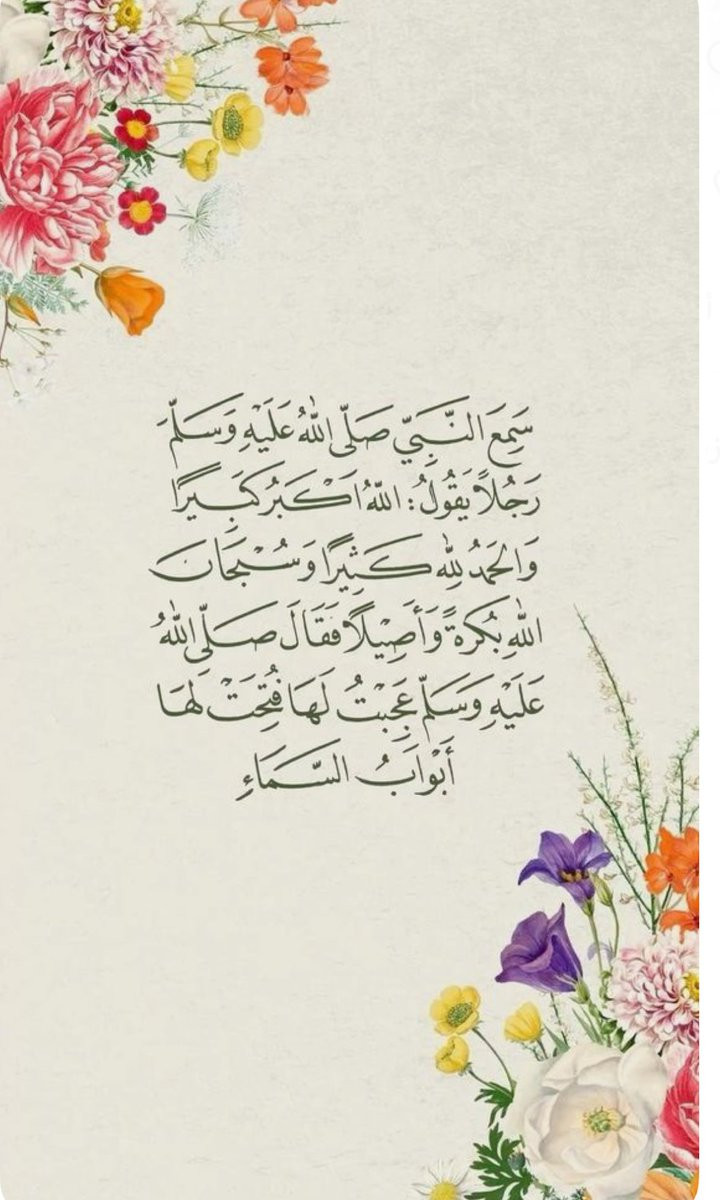 سَمِعَ النَّبِيّ صَلَّى اللهُ عَلَيْهِ وَسَلَّمَ
رَجُلاً يَقُولُ: اللهُ اَكْبَرُ كَبِيرًا
وَالحَمْدُ لِلهِ كَثِيرًا وَسُبْحَانَ
اللهِ بُكْرَةً وَأَصِيْلًا فَقَالَ صَلَّى اللهُ
عَلَيْهِ وَسَلَّمَ عَجِبْتُ لَهَا فُتِحَتْ لَهَا
أَبْوَابُ السَّمَاءِ